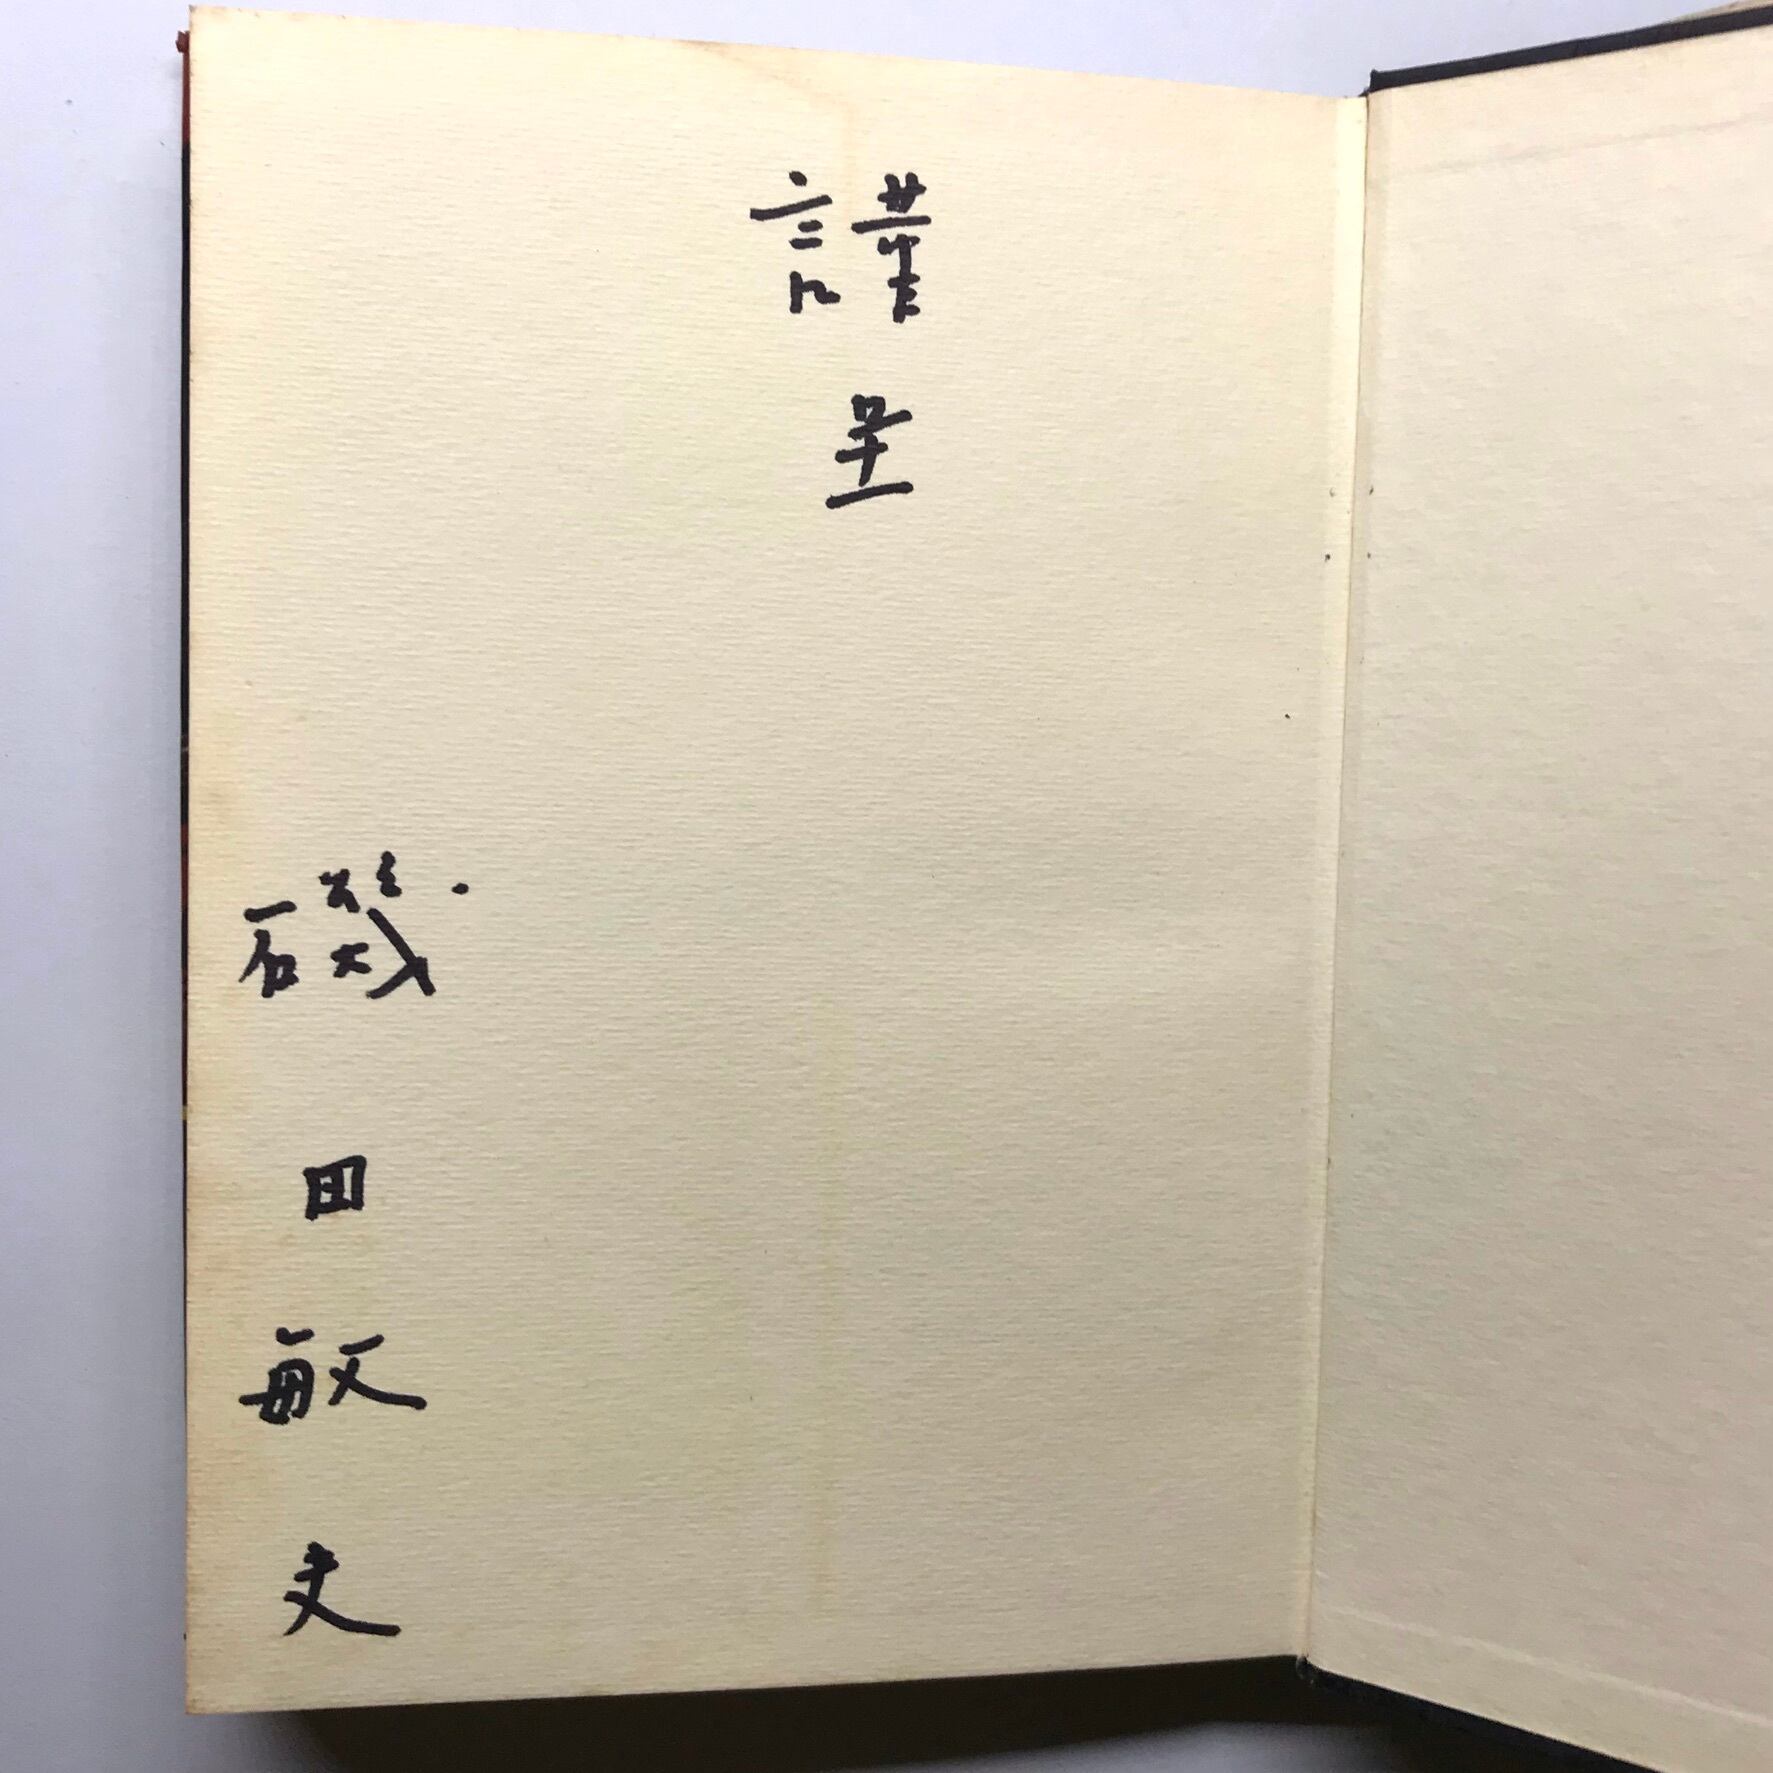 謹呈
磯田敏夫